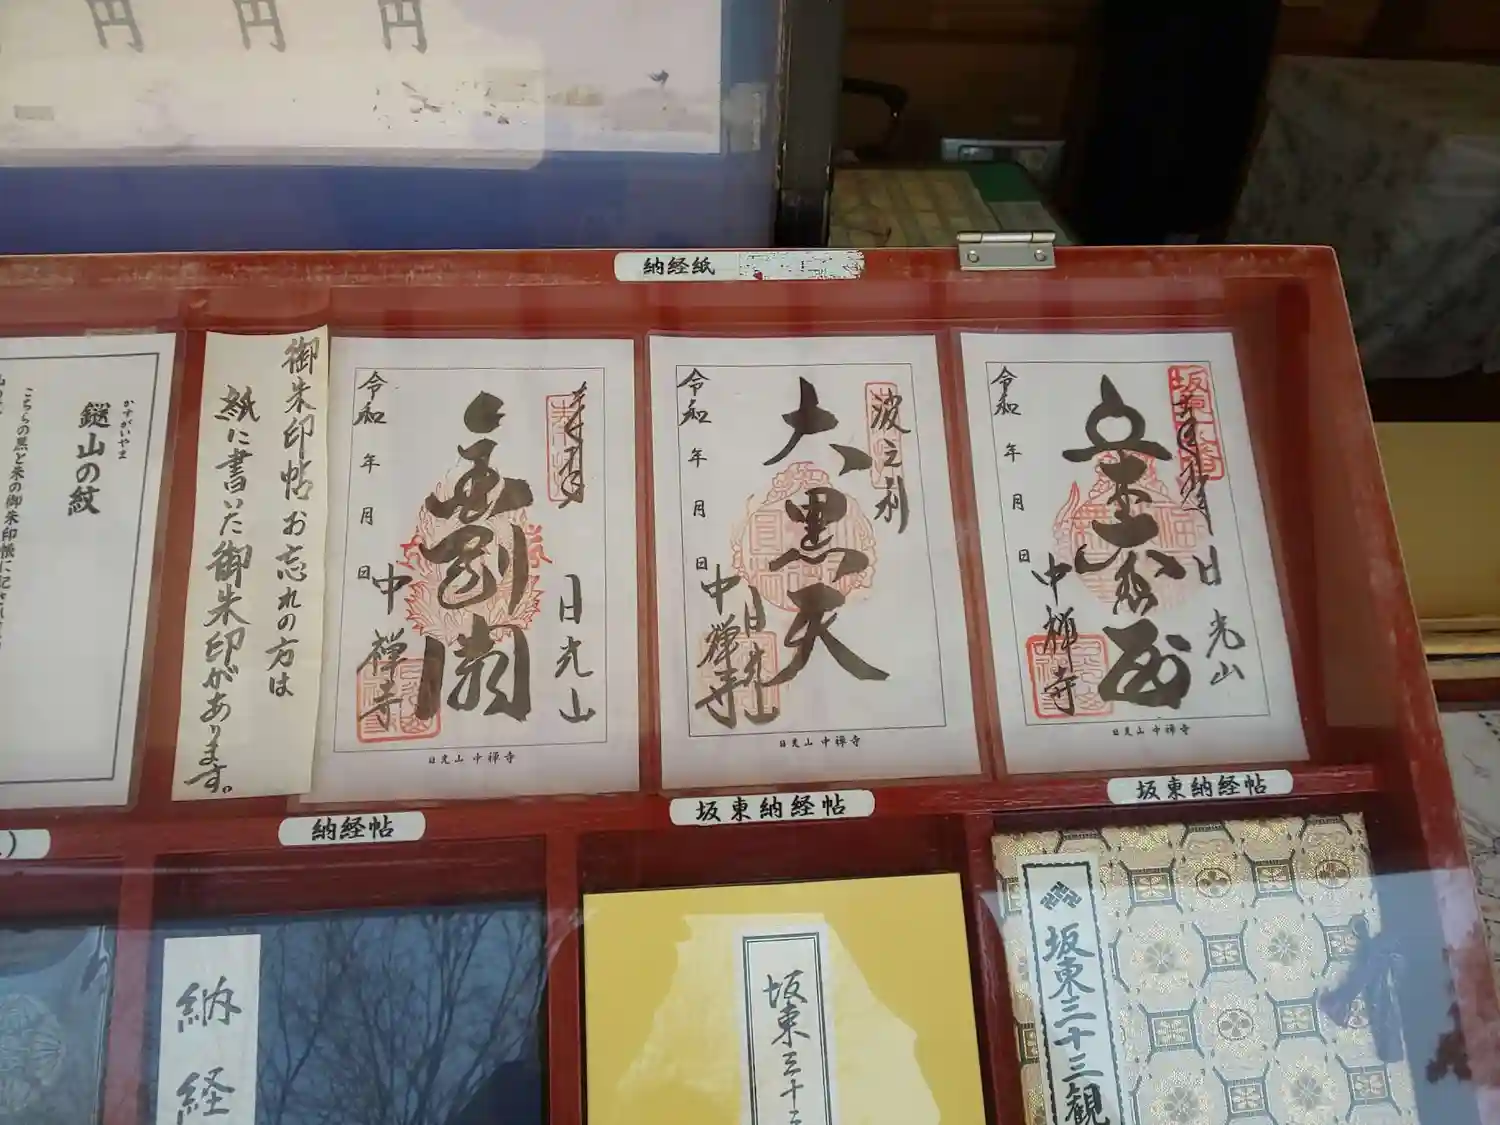 円 円 円
納経紙
鎹山の紋
かすがいやま
こちらの黒と朱の御朱印帳に記
御朱印帖お忘れの方は
紙に書いた御朱印があります。
令和 年 月 日
奉拝
日光山
中禅寺
日光山 中禅寺
令和 年 月 日
波之利
大黒天
日光山
中禅寺
日光山 中禅寺
令和 年 月 日
坂東
日光山
中禅寺
日光山 中禅寺
納経帖
坂東納経帖
坂東納経帖
納経
坂東三十三
坂東三十三観